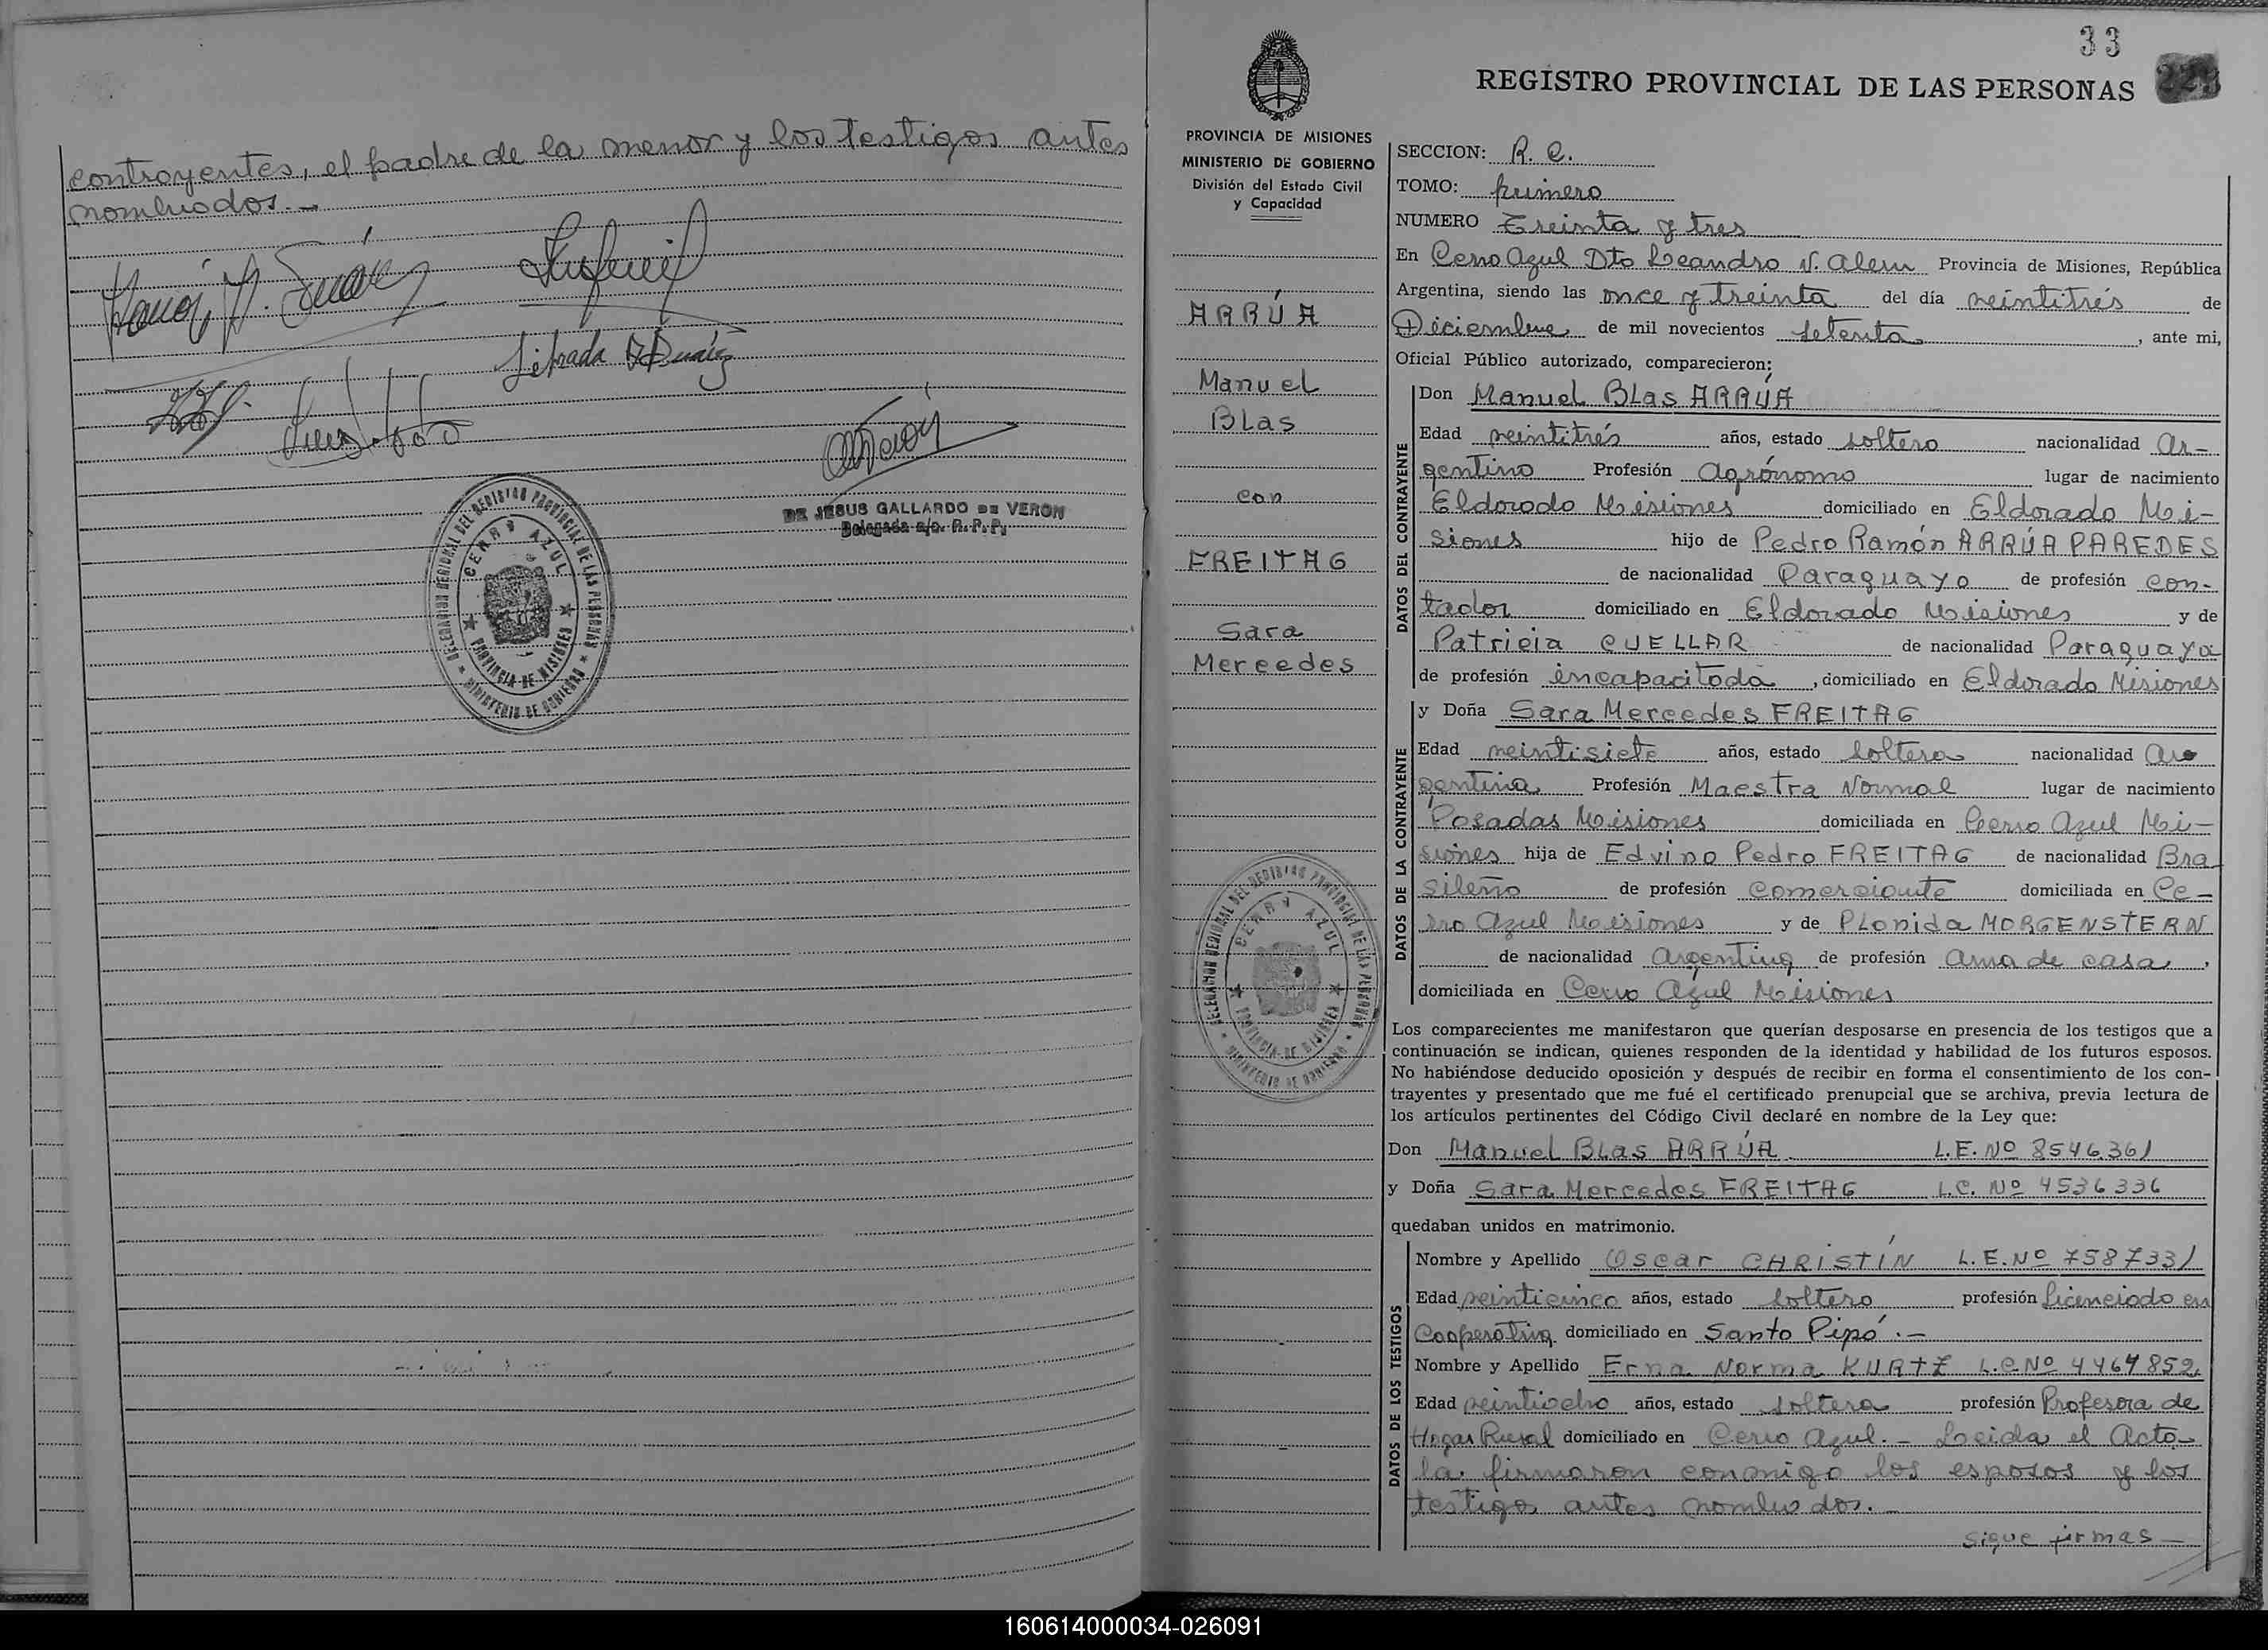 contrayentes, el padre de la menor y los testigos antes
nombrados.-
Librada
DE JESUS GALLARDO DE VERON
Delegada a/c. R. P. P.
DELEGACION REGIONAL DEL REGISTRO PROVINCIAL DE LAS PERSONAS
CERRO AZUL
PROVINCIA DE MISIONES
MINISTERIO DE GOBIERNO
33
REGISTRO PROVINCIAL DE LAS PERSONAS
PROVINCIA DE MISIONES
MINISTERIO DE GOBIERNO
División del Estado Civil
y Capacidad
ARRÚA
Manuel
Blas
con
FREITAG
Sara
Mercedes
DELEGACION REGIONAL DEL REGISTRO PROVINCIAL DE LAS PERSONAS
CERRO AZUL
PROVINCIA DE MISIONES
MINISTERIO DE GOBIERNO
SECCION: R. C.
TOMO: primero
NUMERO Treinta y tres
En Cerro Azul Dto Leandro N. Alem Provincia de Misiones, República
Argentina, siendo las once y treinta del día veintitrés de
Diciembre de mil novecientos setenta, ante mi,
Oficial Público autorizado, comparecieron:
DATOS DEL CONTRAYENTE
Don Manuel Blas ARRÚA
Edad veintitrés años, estado soltero nacionalidad Ar-
gentino Profesión Agrónomo lugar de nacimiento
Eldorado Misiones domiciliado en Eldorado Mi-
siones hijo de Pedro Ramón ARRÚA PAREDES
de nacionalidad Paraguayo de profesión con-
tador domiciliado en Eldorado Misiones y de
Patricia CUELLAR de nacionalidad Paraguaya
de profesión incapacitada, domiciliado en Eldorado Misiones
DATOS DE LA CONTRAYENTE
y Doña Sara Mercedes FREITAG
Edad veintisiete años, estado soltera nacionalidad Ar
gentina Profesión Maestra Normal lugar de nacimiento
Posadas Misiones domiciliada en Cerro Azul Mi-
siones hija de Edvino Pedro FREITAG de nacionalidad Bra
sileño de profesión comerciante domiciliada en Ce-
rro Azul Misiones y de PLonida MORGENSTERN
de nacionalidad Argentina de profesión Ama de casa,
domiciliada en Cerro Azul Misiones
Los comparecientes me manifestaron que querían desposarse en presencia de los testigos que a
continuación se indican, quienes responden de la identidad y habilidad de los futuros esposos.
No habiéndose deducido oposición y después de recibir en forma el consentimiento de los con-
trayentes y presentado que me fué el certificado prenupcial que se archiva, previa lectura de
los artículos pertinentes del Código Civil declaré en nombre de la Ley que:
Don Manuel Blas ARRÚA L.E. Nº 8546361
y Doña Sara Mercedes FREITAG L.C. Nº 4536336
quedaban unidos en matrimonio.
DATOS DE LOS TESTIGOS
Nombre y Apellido Oscar CHRISTÍN L.E. Nº 7587331
Edad veinticinco años, estado soltero profesión Licenciado en
Cooperativa domiciliado en Santo Pipó.-
Nombre y Apellido Erna Norma KURTZ L.C. Nº 4467852
Edad veintiocho años, estado soltera profesión Profesora de
Hogar Rural domiciliado en Cerro Azul.- Leida el Acta
la firmaron conmigo los esposos y los
testigos antes nombrados.-
sigue firmas-
160614000034-026091